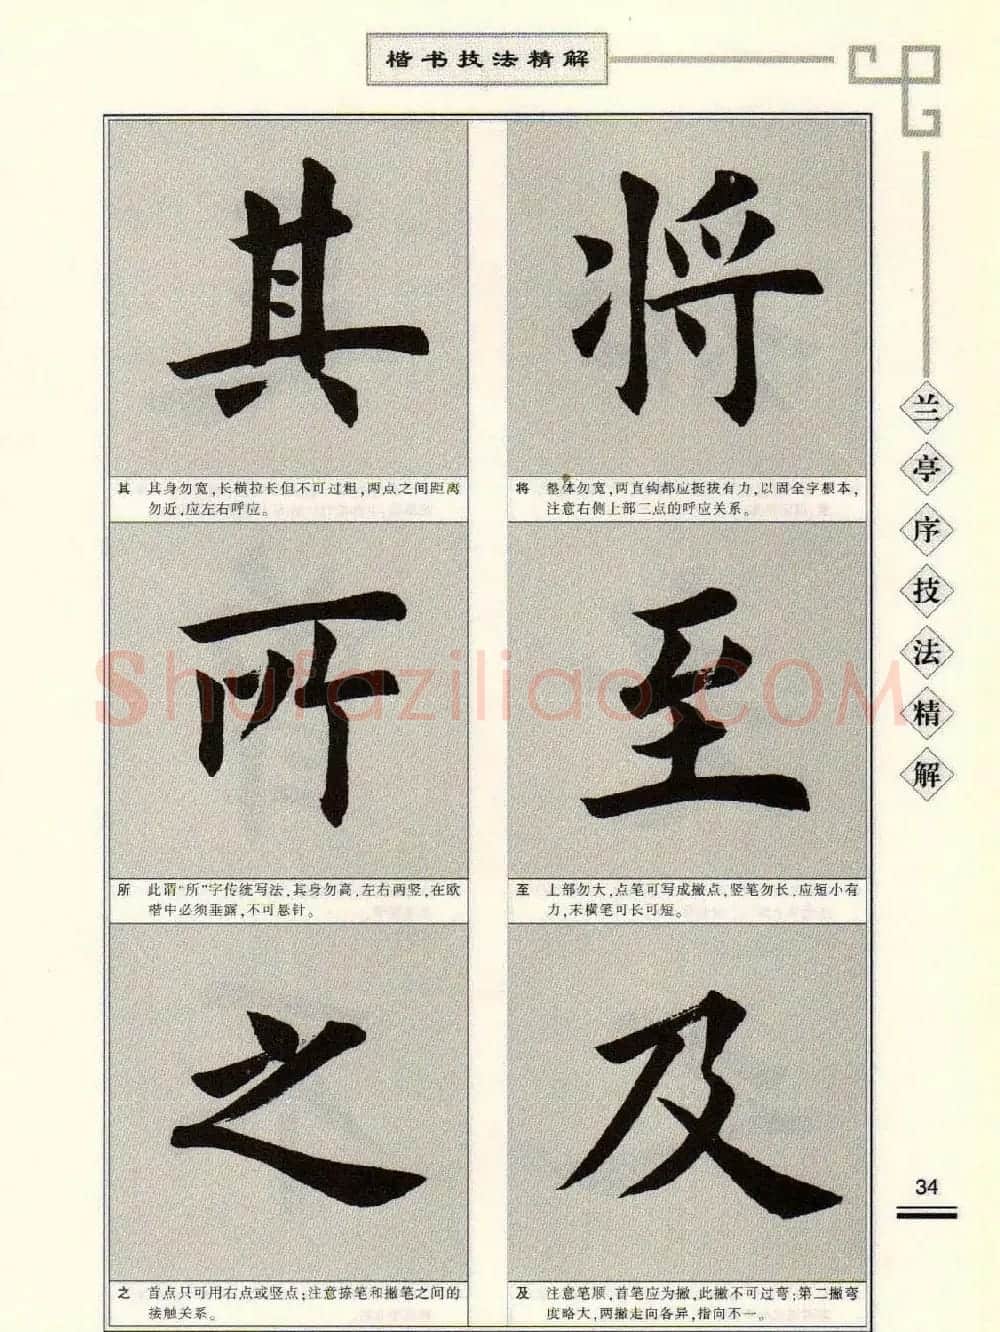 楷书技法精解
将
将 整体勿宽,两直钩都应挺拔有力,以固全字根本,
注意右侧上部三点的呼应关系。
至
至 上部勿大,点笔可写成撇点,竖笔勿长,应短小有
力,末横笔可长可短。
及
及 注意笔顺,首笔应为撇,此撇不可过弯;第二撇弯
度略大,两撇走向各异,指向不一。
其
其 其身勿宽,长横拉长但不可过粗,两点之间距离
勿近,应左右呼应。
所
所 此谓“所”字传统写法,其身勿高,左右两竖,在欧
楷中必须垂露,不可悬针。
之
之 首点只可用右点或竖点;注意捺笔和撇笔之间的
接触关系。
兰亭序技法精解
34
Shufaziliao.COM